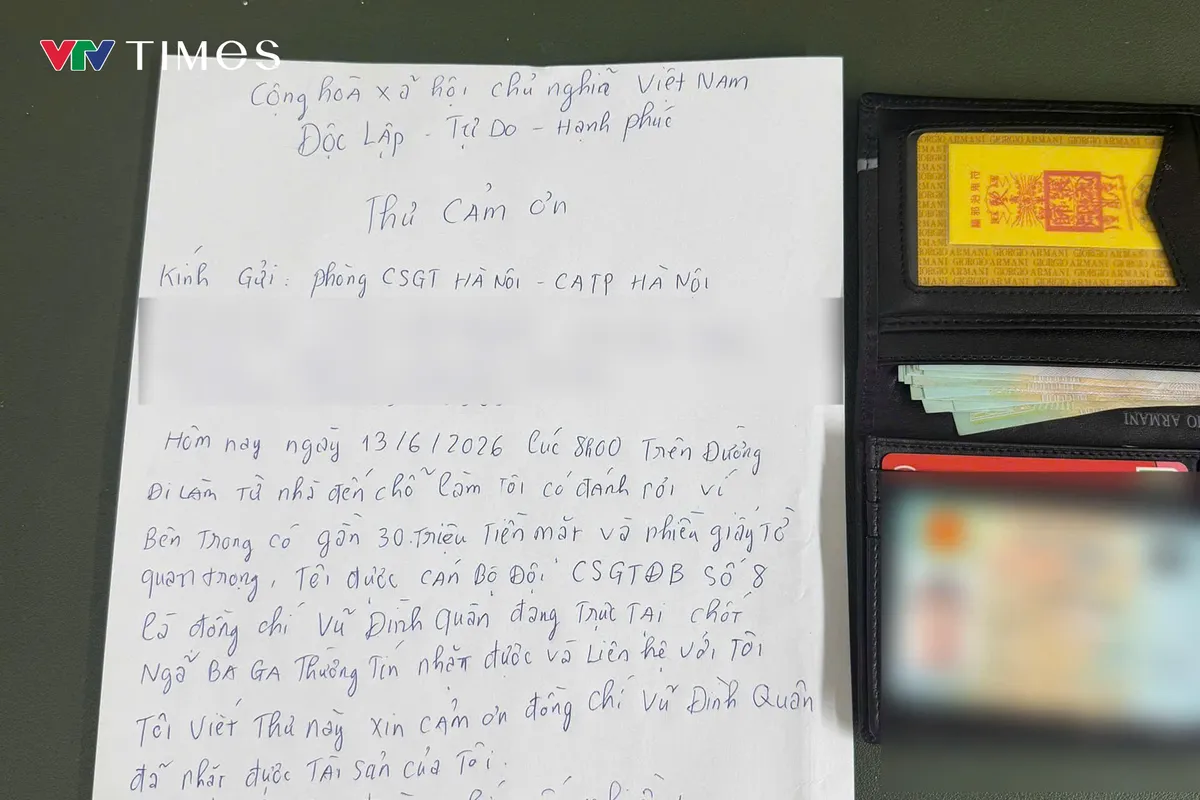 VTV TIMES
Cộng hoà xã hội chủ nghĩa Việt NAM
Độc Lập - Tự Do - Hạnh phúc
Thư Cảm ơn
Kính Gửi: phòng CSGT HÀ NỘI - CATP HÀ NỘI
Hôm nay ngày 13/6/2026 lúc 8h00 Trên Đường
Đi Làm Từ nhà đến chỗ làm Tôi có đánh rơi ví
Bên Trong có gần 30.Triệu Tiền mặt và nhiều giấy tờ
quan trọng, Tôi được CÁN Bộ Đội CSGTĐB Số 8
là đồng chí Vũ Đình Quân đang Trực Tại chốt
Ngã BA GA Thường Tín nhặt được và Liên hệ với Tôi
Tôi Viết Thư này xin cảm ơn đồng chí Vũ Đình Quân
đã nhặt được Tài sản của Tôi.
GIORGIO ARMANI
GIORGIO ARMANI GIORGIO ARMANI
IO ARMANI